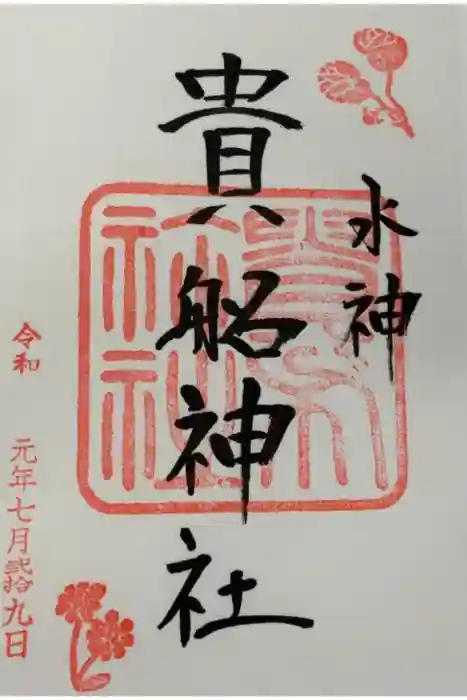 水神
貴船神社
令和元年七月弐拾九日